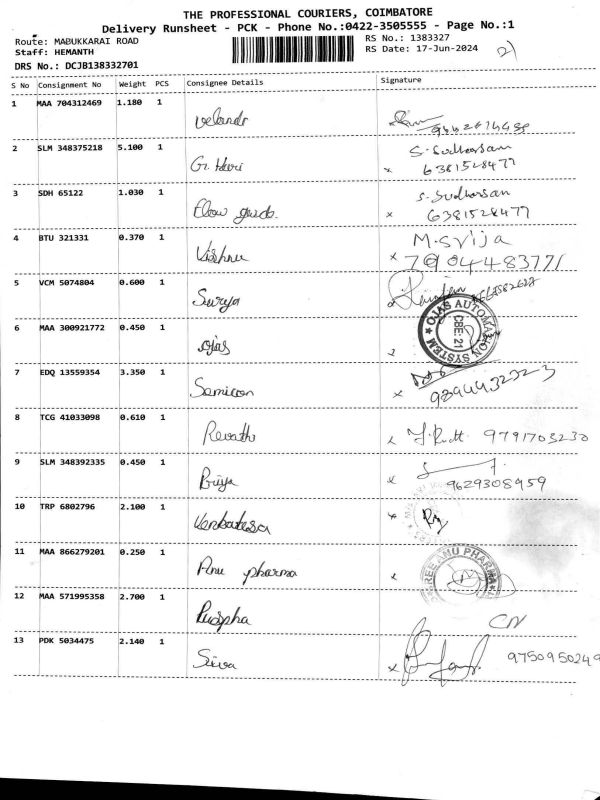 THE PROFESSIONAL COURIERS, COIMBATORE
Delivery Runsheet - PCK - Phone No.:0422-3505555 - Page No.:1
Route: MABUKKARAI ROAD
RS No.: 1383327
Staff: HEMANTH
RS Date: 17-Jun-2024
2)
DRS No.: DCJB138332701
S No Consignment No Weight PCS Consignee Details Signature
1 MAA 704312469 1.180 1
2 SLM 348375218 5.100 1 G. Hari x S. Sudharsan
6381528477
3 SDH 65122 1.030 1 Elow x S. Sudharsan
6381528477
4 BTU 321331 0.370 1 Vishnu x M.SVija
7904483771
5 VCM 5074804 0.600 1 Surya
6 MAA 300921772 0.450 1 ojas OJAS AUTOMATION SYSTEM CBE: 21
7 EDQ 13559354 3.350 1 Semicon x 9894432323
8 TCG 41033098 0.610 1 Revathi x 9791703230
9 SLM 348392335 0.450 1 Priya x 9629308959
10 TRP 6802796 2.100 1 Venkatesa x
11 MAA 866279201 0.250 1 Anu pharma x SREE ANU PHARMA
12 MAA 571995358 2.700 1 Puspha CN
13 PDK 5034475 2.140 1 Siva x 9750950249